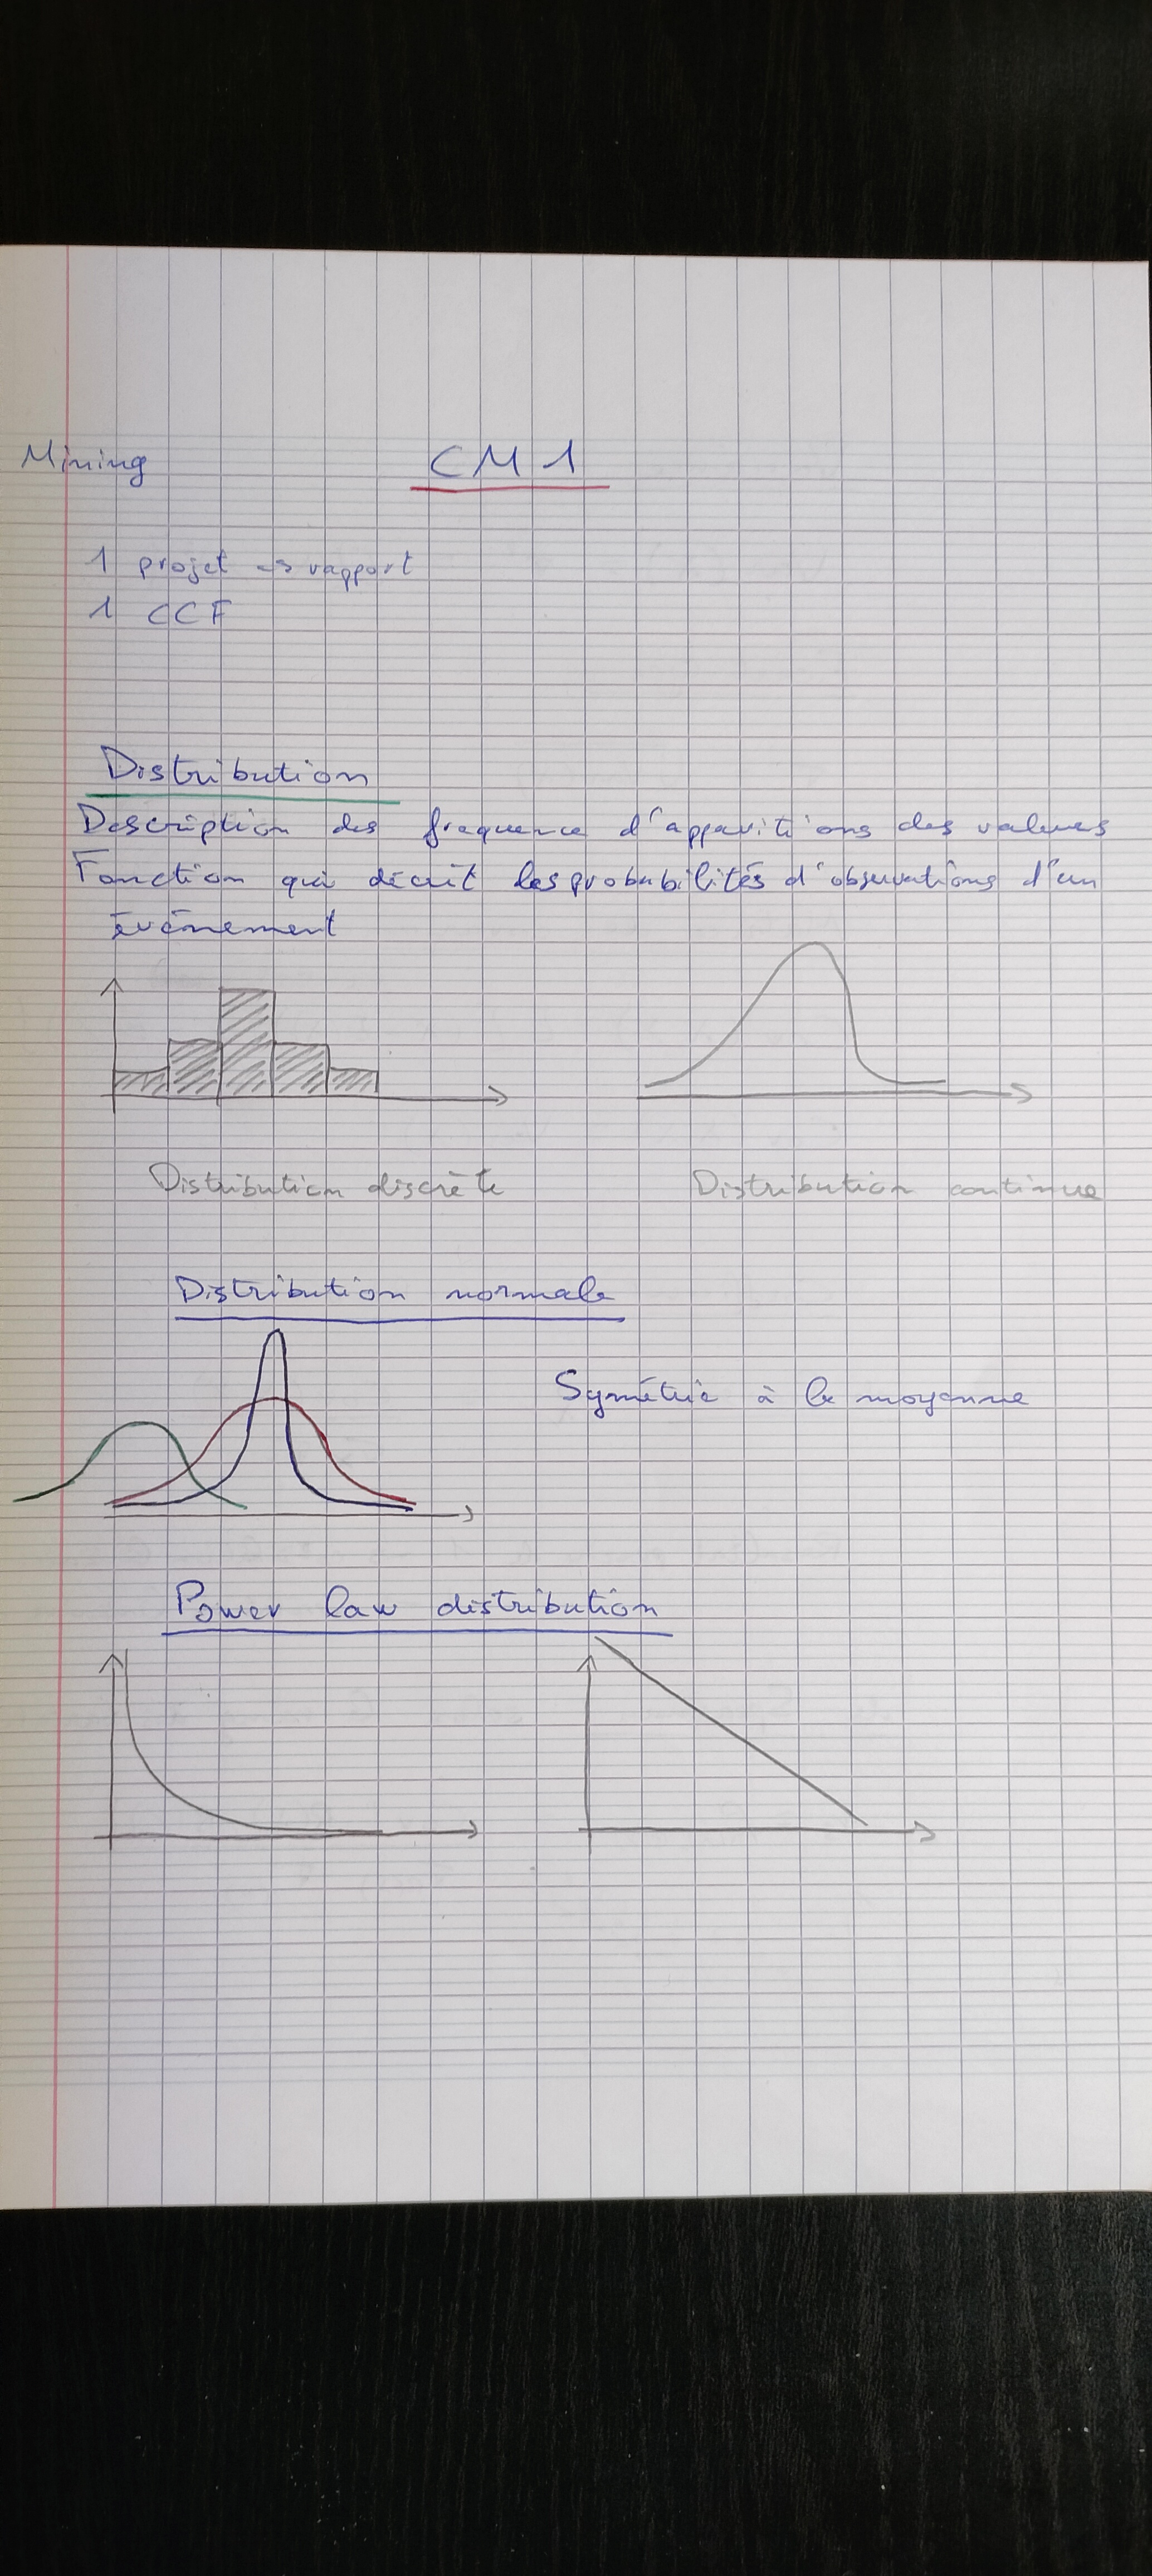 Mining
CM 1
1 projet → rapport
1 CCF
Distribution
Description des frequence d'apparitions des valeurs
Fonction qui décrit les probabilités d'observations d'un
événement
Distribution discrète
Distribution continue
Distribution normale
Symétrie à la moyenne
Power law distribution